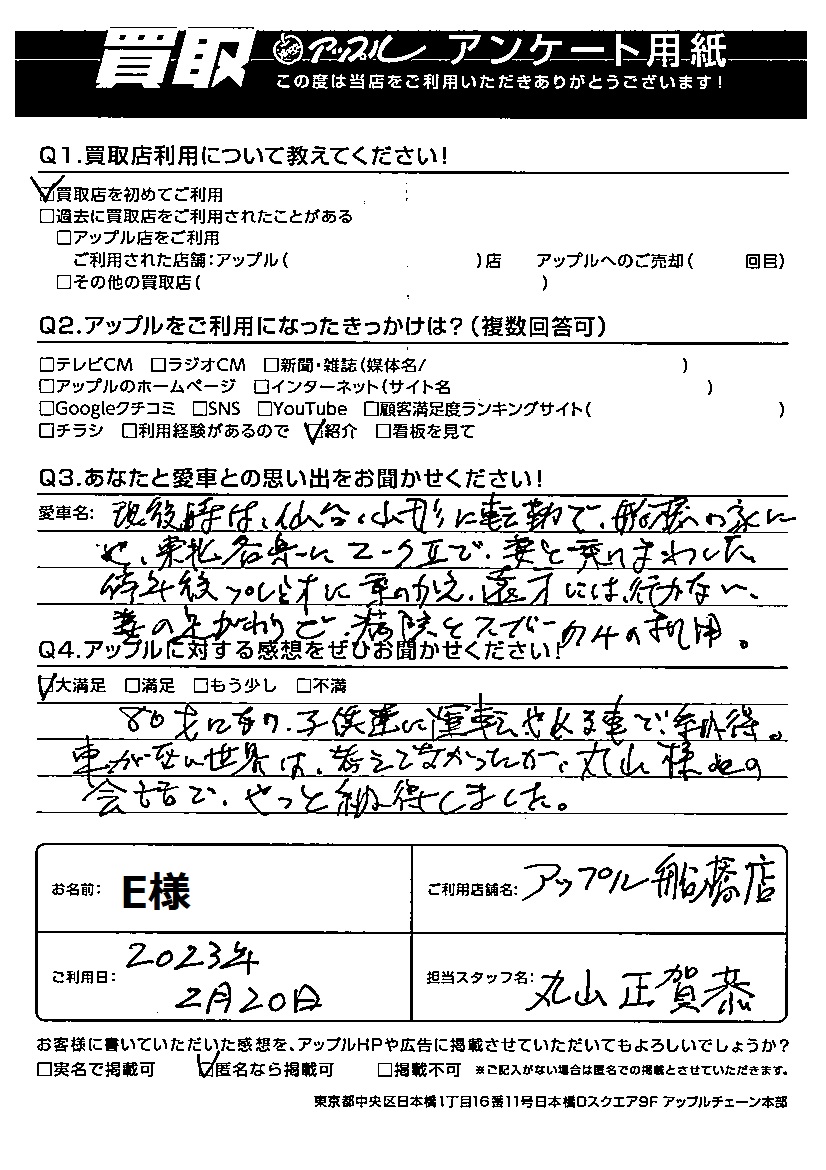 買取 アップル アンケート用紙
この度は当店をご利用いただきありがとうございます!
Q1.買取店利用について教えてください!
☑買取店を初めてご利用
□過去に買取店をご利用されたことがある
□アップル店をご利用
ご利用された店舗:アップル( )店 アップルへのご売却( 回目)
□その他の買取店( )
Q2.アップルをご利用になったきっかけは?(複数回答可)
□テレビCM □ラジオCM □新聞・雑誌(媒体名/ )
□アップルのホームページ □インターネット(サイト名 )
□Googleクチコミ □SNS □YouTube □顧客満足度ランキングサイト( )
□チラシ □利用経験があるので ☑紹介 □看板を見て
Q3.あなたと愛車との思い出をお聞かせください!
愛車名: 現役時は、仙台、山形に転勤で、船橋の家に
、東北各県にマークⅡで、妻と乗りまわした
停年後プレミオに乗りかえ、遠方には行かない、
妻の足がわりで、病院とスーパーのみの利用。
Q4.アップルに対する感想をぜひお聞かせください!
☑大満足 □満足 □もう少し □不満
80才になり、子供達に運転やめる事で、納得。
車がない世界は、考えてなかったが、丸山様との
会話で、やっと納得しました。
お名前: E様
ご利用店舗名: アップル船橋店
ご利用日: 2023年
2月20日
担当スタッフ名: 丸山 正賀恭
お客様に書いていただいた感想を、アップルHPや広告に掲載させていただいてもよろしいでしょうか?
□実名で掲載可 ☑匿名なら掲載可 □掲載不可 ※ご記入がない場合は匿名での掲載とさせていただきます。
東京都中央区日本橋1丁目16番11号日本橋Dスクエア9F アップルチェーン本部